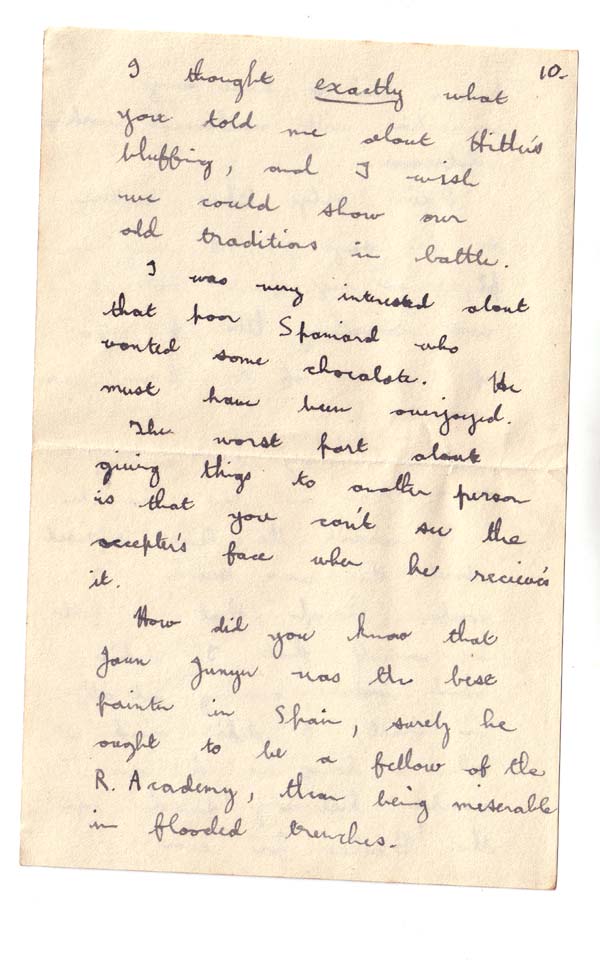 10.
I thought exactly what
you told me about Hitler's
bluffing, and I wish
we could show our
old traditions in battle.
I was very interested about
that poor Spaniard who
wanted some chocolate. He
must have been overjoyed.
The worst part about
giving things to another person
is that you can't see the
accepter's face when he recieves
it.
How did you know that
Jaun Junyer was the best
painter in Spain, surely he
ought to be a fellow of the
R. Academy, than being miserable
in flooded trenches.